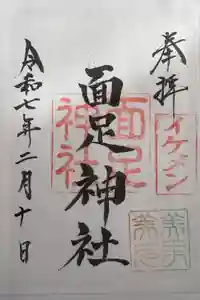 奉拝
イケメン
面足神社
面足
神社
令和七年二月十日